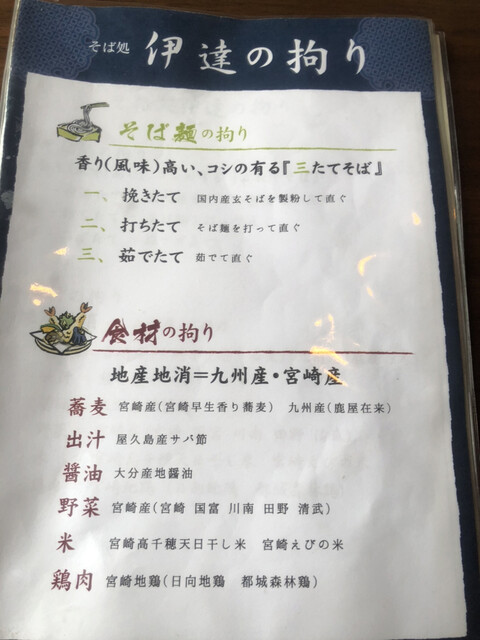 そば処 伊達の拘り
そば麺の拘り
香り(風味)高い、コシの有る『三たてそば』
一、 挽きたて 国内産玄そばを製粉して直ぐ
二、 打ちたて そば麺を打って直ぐ
三、 茹でたて 茹でて直ぐ
食材の拘り
地産地消＝九州産・宮崎産
蕎麦 宮崎産(宮崎早生香り蕎麦) 九州産(鹿屋在来)
出汁 屋久島産サバ節
醤油 大分産地醤油
野菜 宮崎産(宮崎 国富 川南 田野 清武)
米 宮崎高千穂天日干し米 宮崎えびの米
鶏肉 宮崎地鶏(日向地鶏 都城森林鶏)